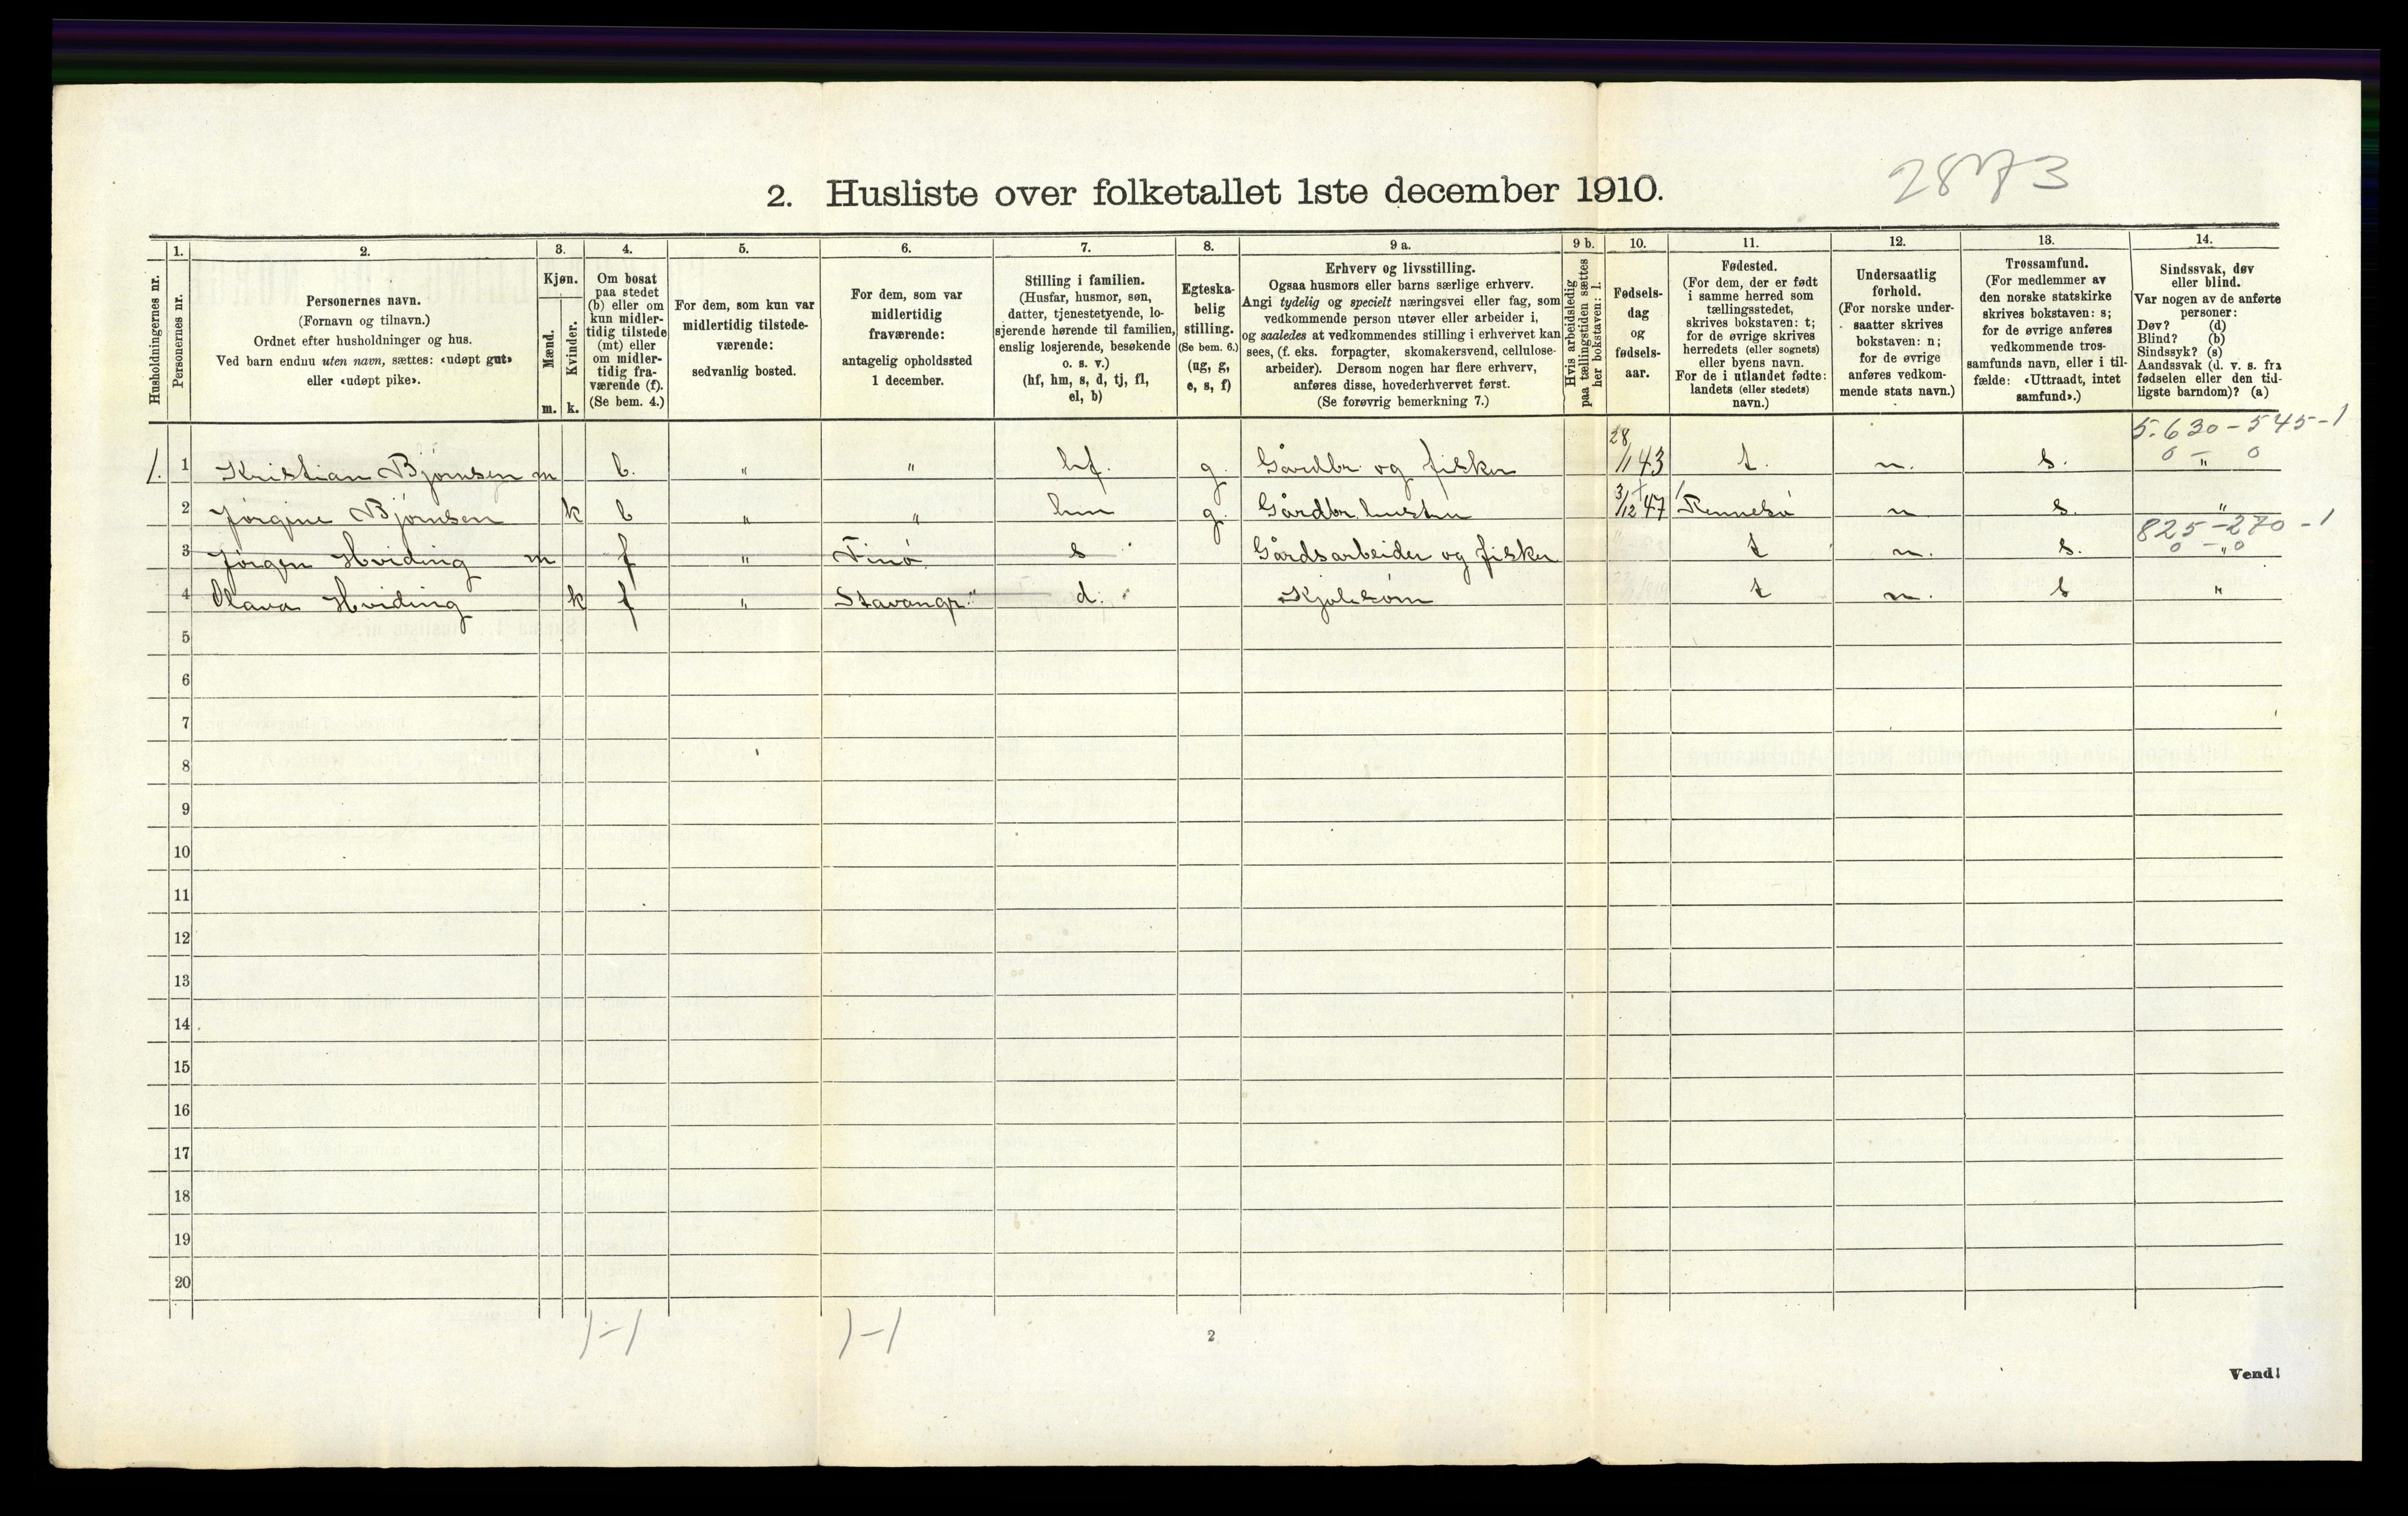 2873
2. Husliste over folketallet 1ste december 1910.
Husholdningernes nr.
1.
Personernes nr.
2.
Personernes navn.
(Fornavn og tilnavn.)
Ordnet efter husholdninger og hus.
Ved barn endnu uten navn, sættes: «udøpt gut»
eller «udøpt pike».
3.
Kjøn.
Mænd.
Kvinder.
m. k.
4.
Om bosat
paa stedet
(b) eller om
kun midler-
tidig tilstede
(mt) eller
om midler-
tidig fra-
værende (f).
(Se bem. 4.)
5.
For dem, som kun var
midlertidig tilstede-
værende:
sedvanlig bosted.
6.
For dem, som var
midlertidig
fraværende:
antagelig opholdssted
1 december.
7.
Stilling i familien.
(Husfar, husmor, søn,
datter, tjenestetyende, lo-
sjerende hørende til familien,
enslig losjerende, besøkende
o. s. v.)
(hf, hm, s, d, tj, fl,
el, b)
8.
Egteska-
belig
stilling.
(Se bem. 6.)
(ug, g,
e, s, f)
9 a.
Erhverv og livsstilling.
Ogsaa husmors eller barns særlige erhverv.
Angi tydelig og specielt næringsvei eller fag, som
vedkommende person utøver eller arbeider i,
og saaledes at vedkommendes stilling i erhvervet kan
sees, (f. eks. forpagter, skomakersvend, cellulose-
arbeider). Dersom nogen har flere erhverv,
anføres disse, hovederhvervet først.
(Se forøvrig bemerkning 7.)
9 b.
Hvis arbeidsledig
paa tællingstiden sættes
her bokstaven: l.
10.
Fødsels-
dag
og
fødsels-
aar.
11.
Fødested.
(For dem, der er født
i samme herred som
tællingsstedet,
skrives bokstaven: t;
for de øvrige skrives
herredets (eller sognets)
eller byens navn.
For de i utlandet fødte:
landets (eller stedets)
navn.)
12.
Undersaatlig
forhold.
(For norske under-
saatter skrives
bokstaven: n;
for de øvrige
anføres vedkom-
mende stats navn.)
13.
Trossamfund.
(For medlemmer av
den norske statskirke
skrives bokstaven: s;
for de øvrige anføres
vedkommende tros-
samfunds navn, eller i til-
fælde: «Uttraadt, intet
samfund».)
14.
Sindssvak, døv
eller blind.
Var nogen av de anførte
personer:
Døv? (d)
Blind? (b)
Sindssyk? (s)
Aandssvak (d. v. s. fra
fødselen eller den tid-
ligste barndom)? (a)
5.630-545-1
0 - 0
1. 1 Kristian Bjørnsen m b. " " hf. g. Gårdbr. og fisker 28/1 43 t. n. s. "
2 Jørgine Bjørnsen k b " " hm g. Gårdbr. hustru 3/12 47 Rennesø n s. "
825-270-1
0 - 0
3 Jørgen Hviding m f " Finø s Gårdsarbeider og fisker t n. s. "
4 Olava Hviding k f " Stavanger " d. t n. s "
5
6
7
8
9
10
11
12
13
14
15
16
17
18
19
20
1-1 1-1
2
Vend!